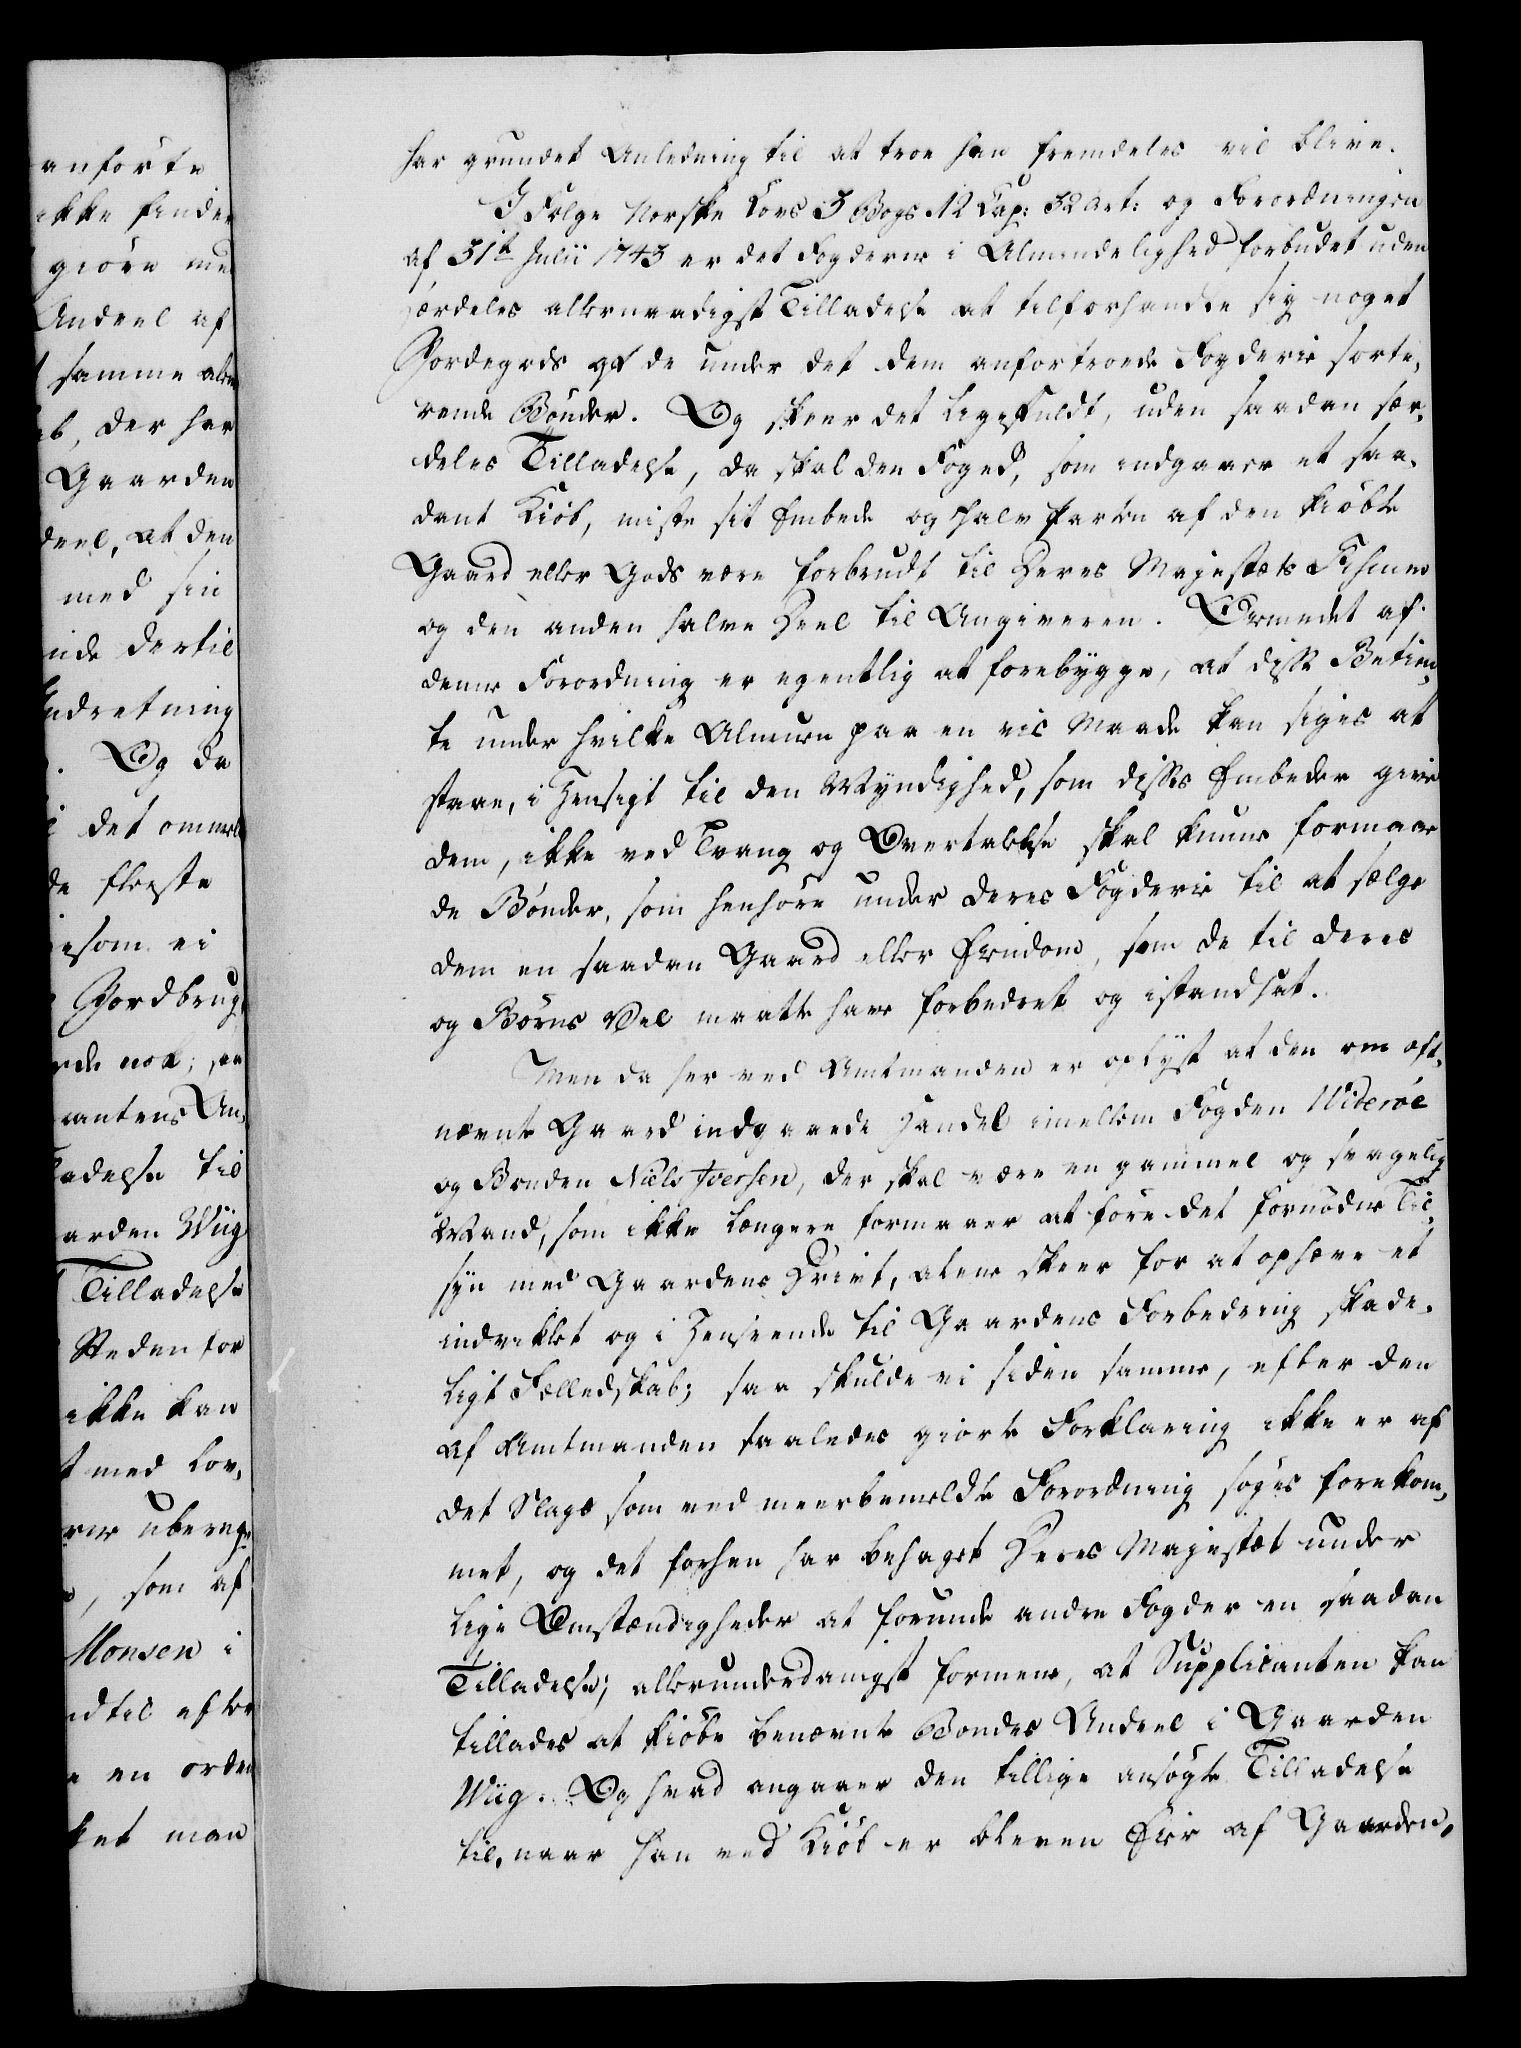 anförte
ikke finder
giöre me
Andeel af
samme alene
eb, der har
Gaarden
deel, at den
med sin
inde dertil
Indretning
Og da
det omm
de fleeste
som ei
Jordbrug,
nok; saa
cantens An,
ladelse til
arden Wiig
Tilladelse
Steden for
ikke kan
med Lov,
, som af
Monsen i
ndtil efter
en orden
ket man
har grundet Anledning til at troe han fremdeles vil blive.
I Følge Norske Lovs 3 Bogs 12 Cap: 32 Art: og Forordningen
af 31te Julii 1743 er det Fogderne i Almindelighed forbudet uden
særdeles allernaadigst Tilladelse at tilforhandle sig noget
Jordegods af de under det dem anfortroede Fogderie sorte,
rende Bönder. Og skeer det ligefuldt, uden saadan sær,
deles Tilladelse, da skal den Foged, som indgaaer et saa,
dant Kiöb, miste sit Embede og halv Parten af den kiöbte
Gaard eller Gods være forbrudt til Deres Majestæts Casse
og den anden halve Deel til Angiveren. Öiemedet af
denne Forordning er egentlig at forebygge, at disse Betien,
te under hvilke Almuen paa en vis Maade kan siges at
staae, i Hensigt til den Myndighed, som disses Embeder give
dem, ikke ved Tvang og Overtalelse skal kunne formaae
de Bönder, som henhöre under deres Fogderie til at sælge
dem en saadan Gaard eller Eiendom, som de til deres
og Börns Vel maatte have forbedret og istandsat.
Men da her ved Amtmanden er oplyst at den om oft,
nævnte Gaard indgaaede Handel imellem Fogden Wideröe
og Bonden Niels Iversen, der skal være en gammel og svagelig
Mand, som ikke længere formaaer at före det fornödne Til,
syn med Gaardens Drivt, alene skeer for at ophæve et
indviklet og i Henseende til Gaardens Forbedring skade,
ligt Fælledskab; saa skulde vi siden samme, efter den
af Amtmanden saaledes giorte Forklaring ikke er af
det Slags som ved meerbemeldte Forordning söges forekom,
met, og det forhen har behaget Deres Majestæt under
lige Omstændigheder at forunde andre Fogder en saadan
Tilladelse; allerunderdanigst formene, at Supplicanten kan
tillades at kiöbe benævnte Bondes Andeel i Gaarden
Wiig. Og hvad angaaer den tillige ansögte Tilladelse
til, naar han ved Kiöb er bleven Eier af Gaarden,